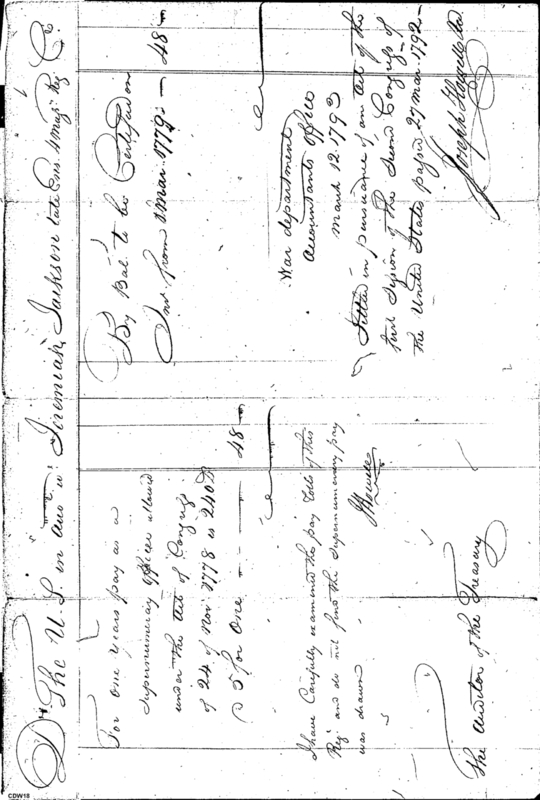 Dr The U S. in acct w. Jeremiah Jackson late Ens. 4 Mary. Reg Cr
For one years pay as a
Supernumerary officer allowed
under the Act of Congress
of 24 of Nov 1778 is 240 Ds
5 for One — 48
I have Carefully examined the pay rolls of this
Reg and do not find the Supernumerary pay
was drawn
J Howell
The Auditor of the Treasury
By Bal. to be Certified on
Int. from 1 Mar. 1779 — 48
War department
Accountants office
March 12. 1793
Settled in pursuance of an Act of the
first Session of the Second Congress of
the United States passed 27 Mar 1792 —
Joseph Howell
CDW18